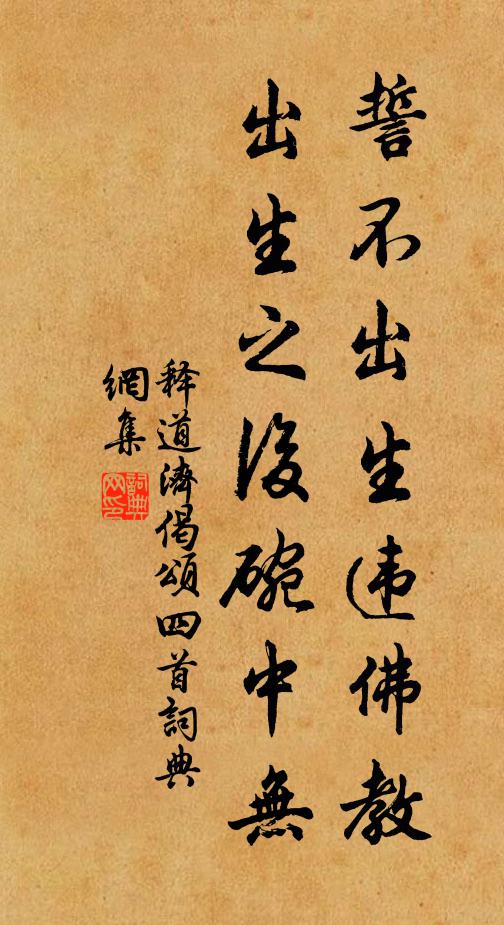 誓不出生违佛教
出生之後碗中無
释道濟偈頌四首詞典
網集
詞典
网印